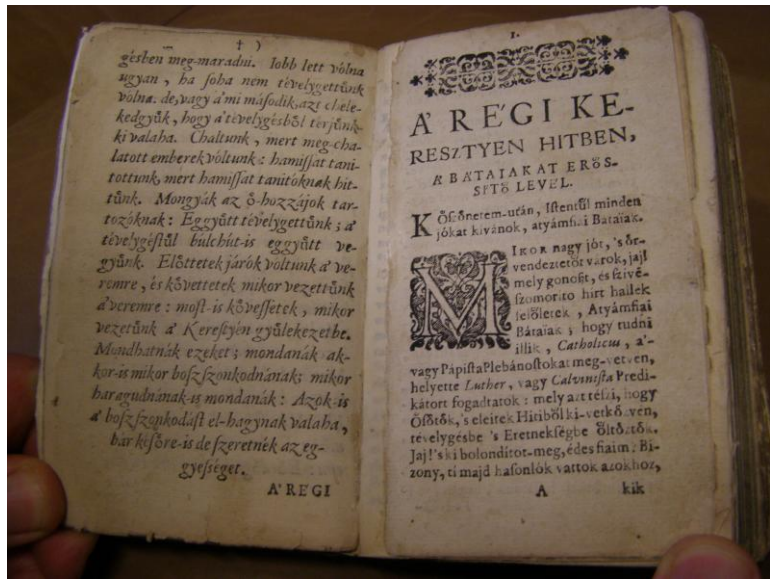 † )
gésben meg-maradni. Iobb lett vólna
ugyan, ha soha nem tévelygettünk
vólna. de, vagy a'mi második, azt chele-
kedgyük, hogy a'tévelygésböl térjünk-
ki valaha. Chaltunk, mert meg-cha-
latott emberek vóltunk: hamissat tani-
tottunk, mert hamissat tanitoknak hit-
tünk. Mongyák az ö-hozzájok tar-
tozóknak: Eggyütt tévelygettünk; a'
tévelygéstül búlchút-is eggyütt ve-
gyünk. Elöttetek járók vóltunk a' ve-
remre, és követtetek mikor vezettünk
a'veremre: most-is kövessetek, mikor
vezetünk a' Keresztyén gyülekezetbe.
Mondhatnák ezeket; mondanák ak-
kor-is mikor boszszonkodnának; mikor
haragudnának-is mondanák: Azok-is
a' boszszonkodást el-hagynak valaha,
bár késöre-is de szeretnék az eg-
gyességet.
A' REGI
1.
A' RE'GI KE-
RESZTYEN HITBEN,
A' BATAIAKAT ERÖS-
SITÖ LEVEL.
KÖszönetem-után, Istentül minden
jókat kivánok, atyámfiai Bátaiak.
MIKOR nagy jót, 's ör-
vendeztetöt várok, jaj!
mely gonosz, és szivé-
szomorito hirt hallek
felöletek, Atyámfiai
Bátaiak; hogy tudni
illik, Catholicus, a'-
vagy Pápista Plebánostokat meg-vetven,
helyette Luther, vagy Calvinista Predi-
kátort fogadtatok: mely azt tészi, hogy
Ösötök, 's eleitek Hitiböl ki-vetközven,
tévelygésbe 's Eretnekségbe öltöztök.
Jaj! 's ki bolonditot-meg, édes fiaim; Bi-
zony, ti majd hasonlók vattok azokhoz,
A kik